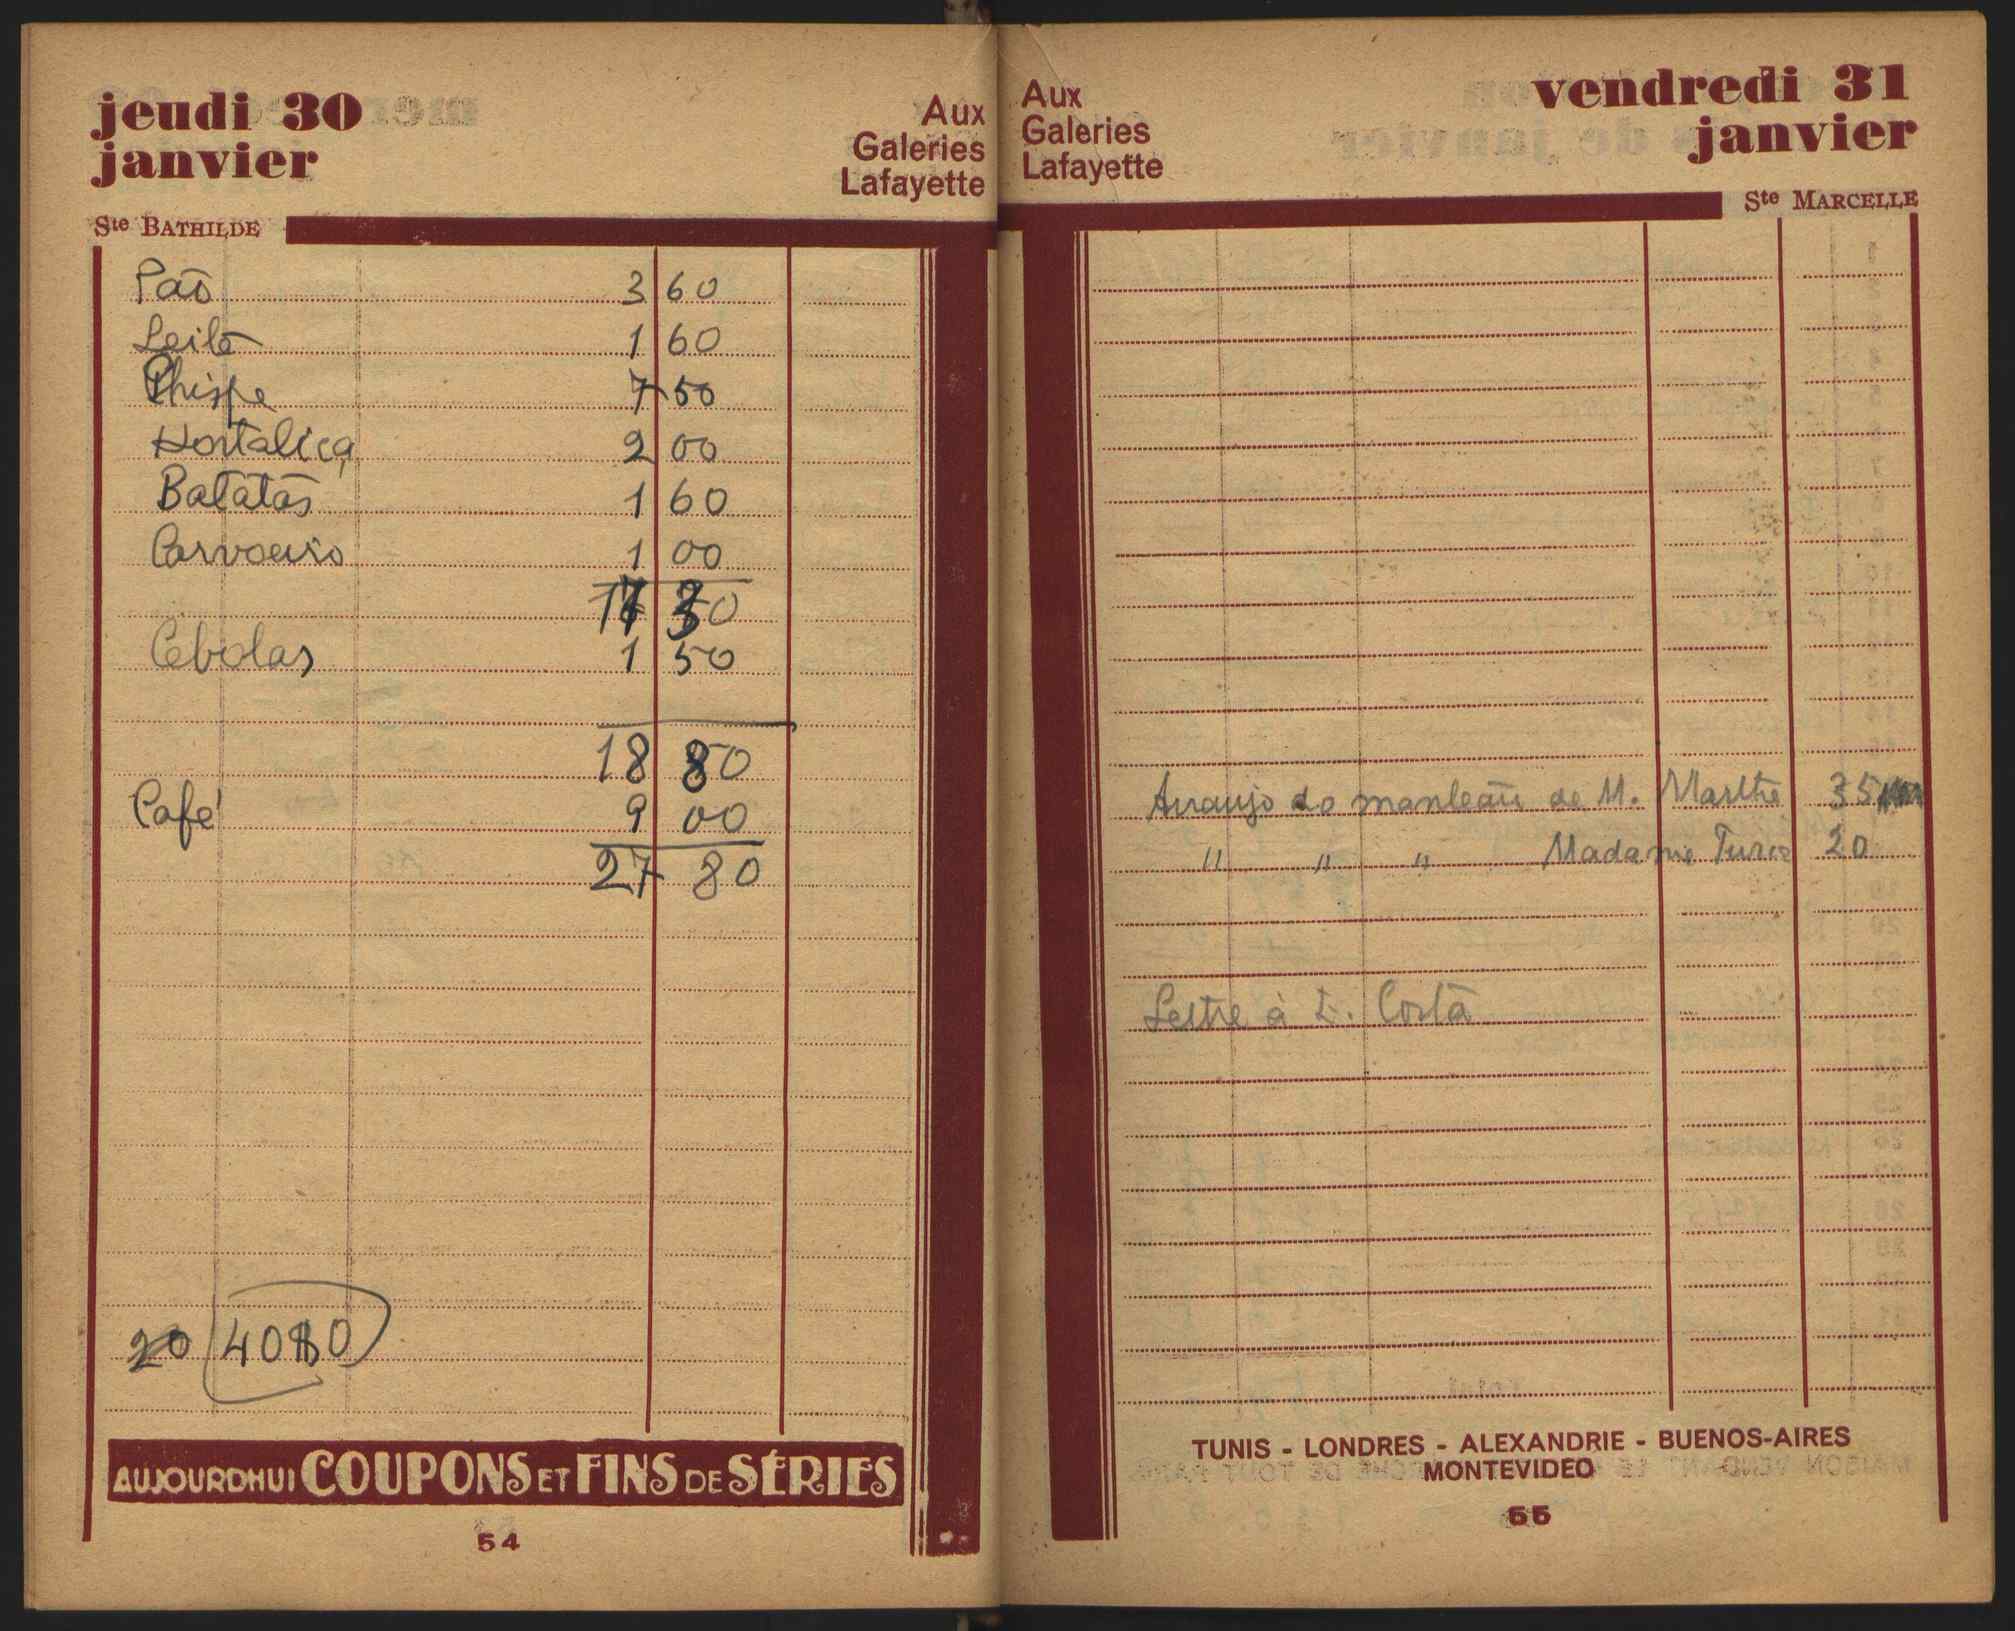 jeudi 30
janvier
Aux
Galeries
Lafayette
Ste BATHILDE
Pão 3 60
Leite 1 60
7 50
Hortaliça 2 00
Batatas 1 60
Carvoeiro 1 00
17 30
Cebolas 1 50
18 80
Café 9 00
27 80
20 40
AUJOURDHUI COUPONS ET FINS DE SÉRIES
54
Aux
Galeries
Lafayette
vendredi 31
janvier
Ste MARCELLE
Arranjo do manteau de M. Marthe 35
" " " Madame 20
Lettre à Costa
TUNIS - LONDRES - ALEXANDRIE - BUENOS-AIRES
MONTEVIDEO
55